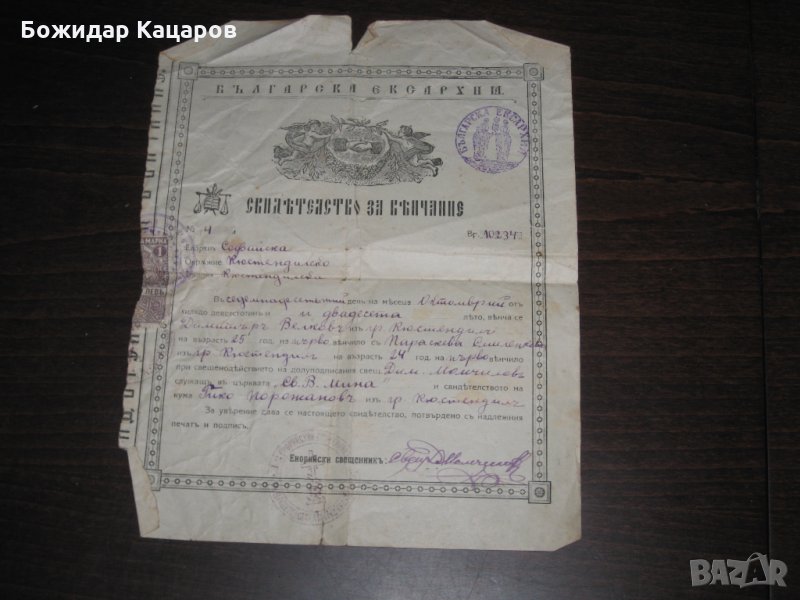 Божидар Кацаров
БЪЛГАРСКА ЕКСАРХИЯ.
БЪЛГАРСКА ЕКСАРХИЯ
СВИДѢТЕЛСТВО ЗА ВѢНЧАНИЕ
№ 4
Вг. 10234
Епархия Софийска
Окръжие Кюстендилско
Кюстендилска
Въ седемнадесетий день на месеца Октомврий отъ
хилядо деветстотинъ и двадесета лѣто, вѣнча се
Димитъръ Велковъ изъ гр. Кюстендилъ
на възрасть 25 год. на първо вѣнчило съ Параскева
изъ гр. Кюстендилъ на възрасть 24 год. на първо вѣнчило
при свещенодѣйствието на долуподписания свещ. Дим. Момчиловъ
служащъ въ църквата „Св. В. Мина" и свидѣтелството на
кума изъ гр. Кюстендилъ
За увѣрение дава се настоящето свидѣтелство, потвърдено съ надлежния
печатъ и подпись.
Енорийски свещенникъ:
BAZAR